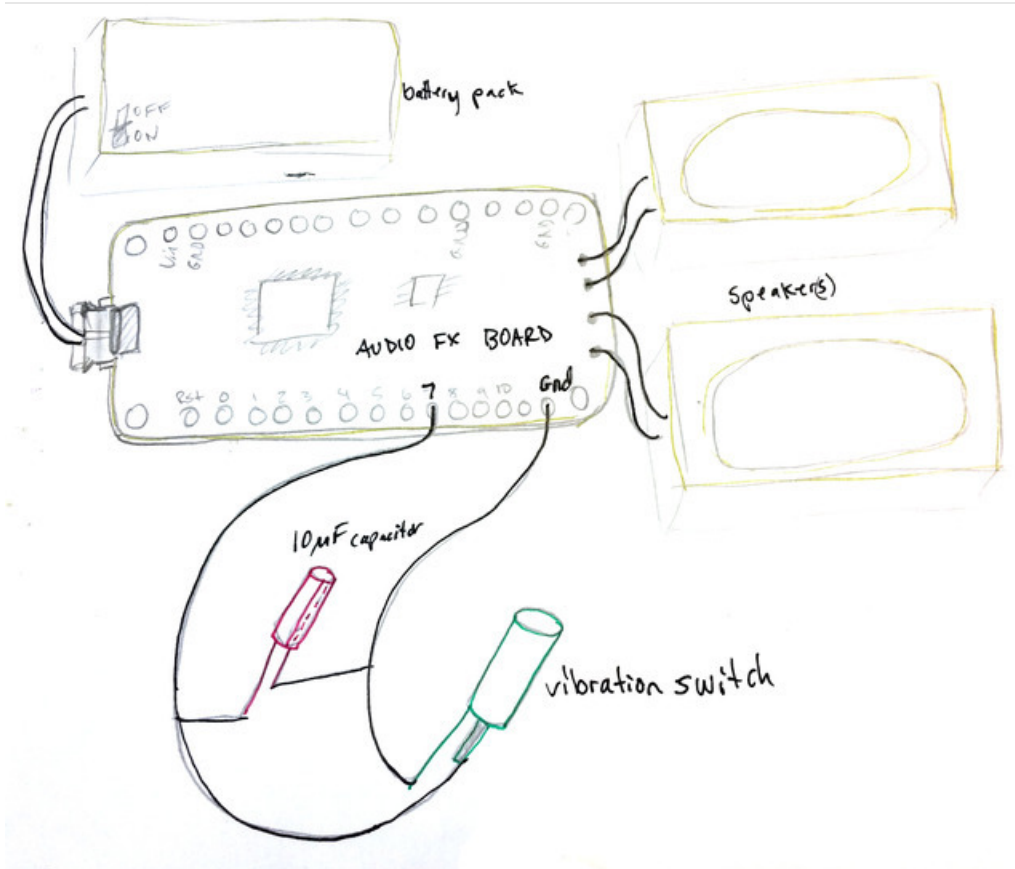 battery pack
OFF
ON
Vin GND GND GND
AUDIO FX BOARD
Speaker(s)
Rst 0 1 2 3 4 5 6 7 8 9 10 Gnd
10µF capacitor
vibration switch